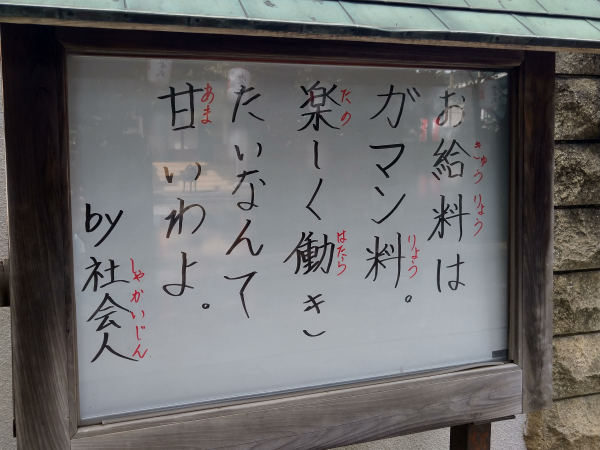 お給料は
ガマン料。
楽しく働き
たいなんて
甘いわよ。
by社会人
きゅうりょう
りょう
たの
はたら
あま
しゃかいじん